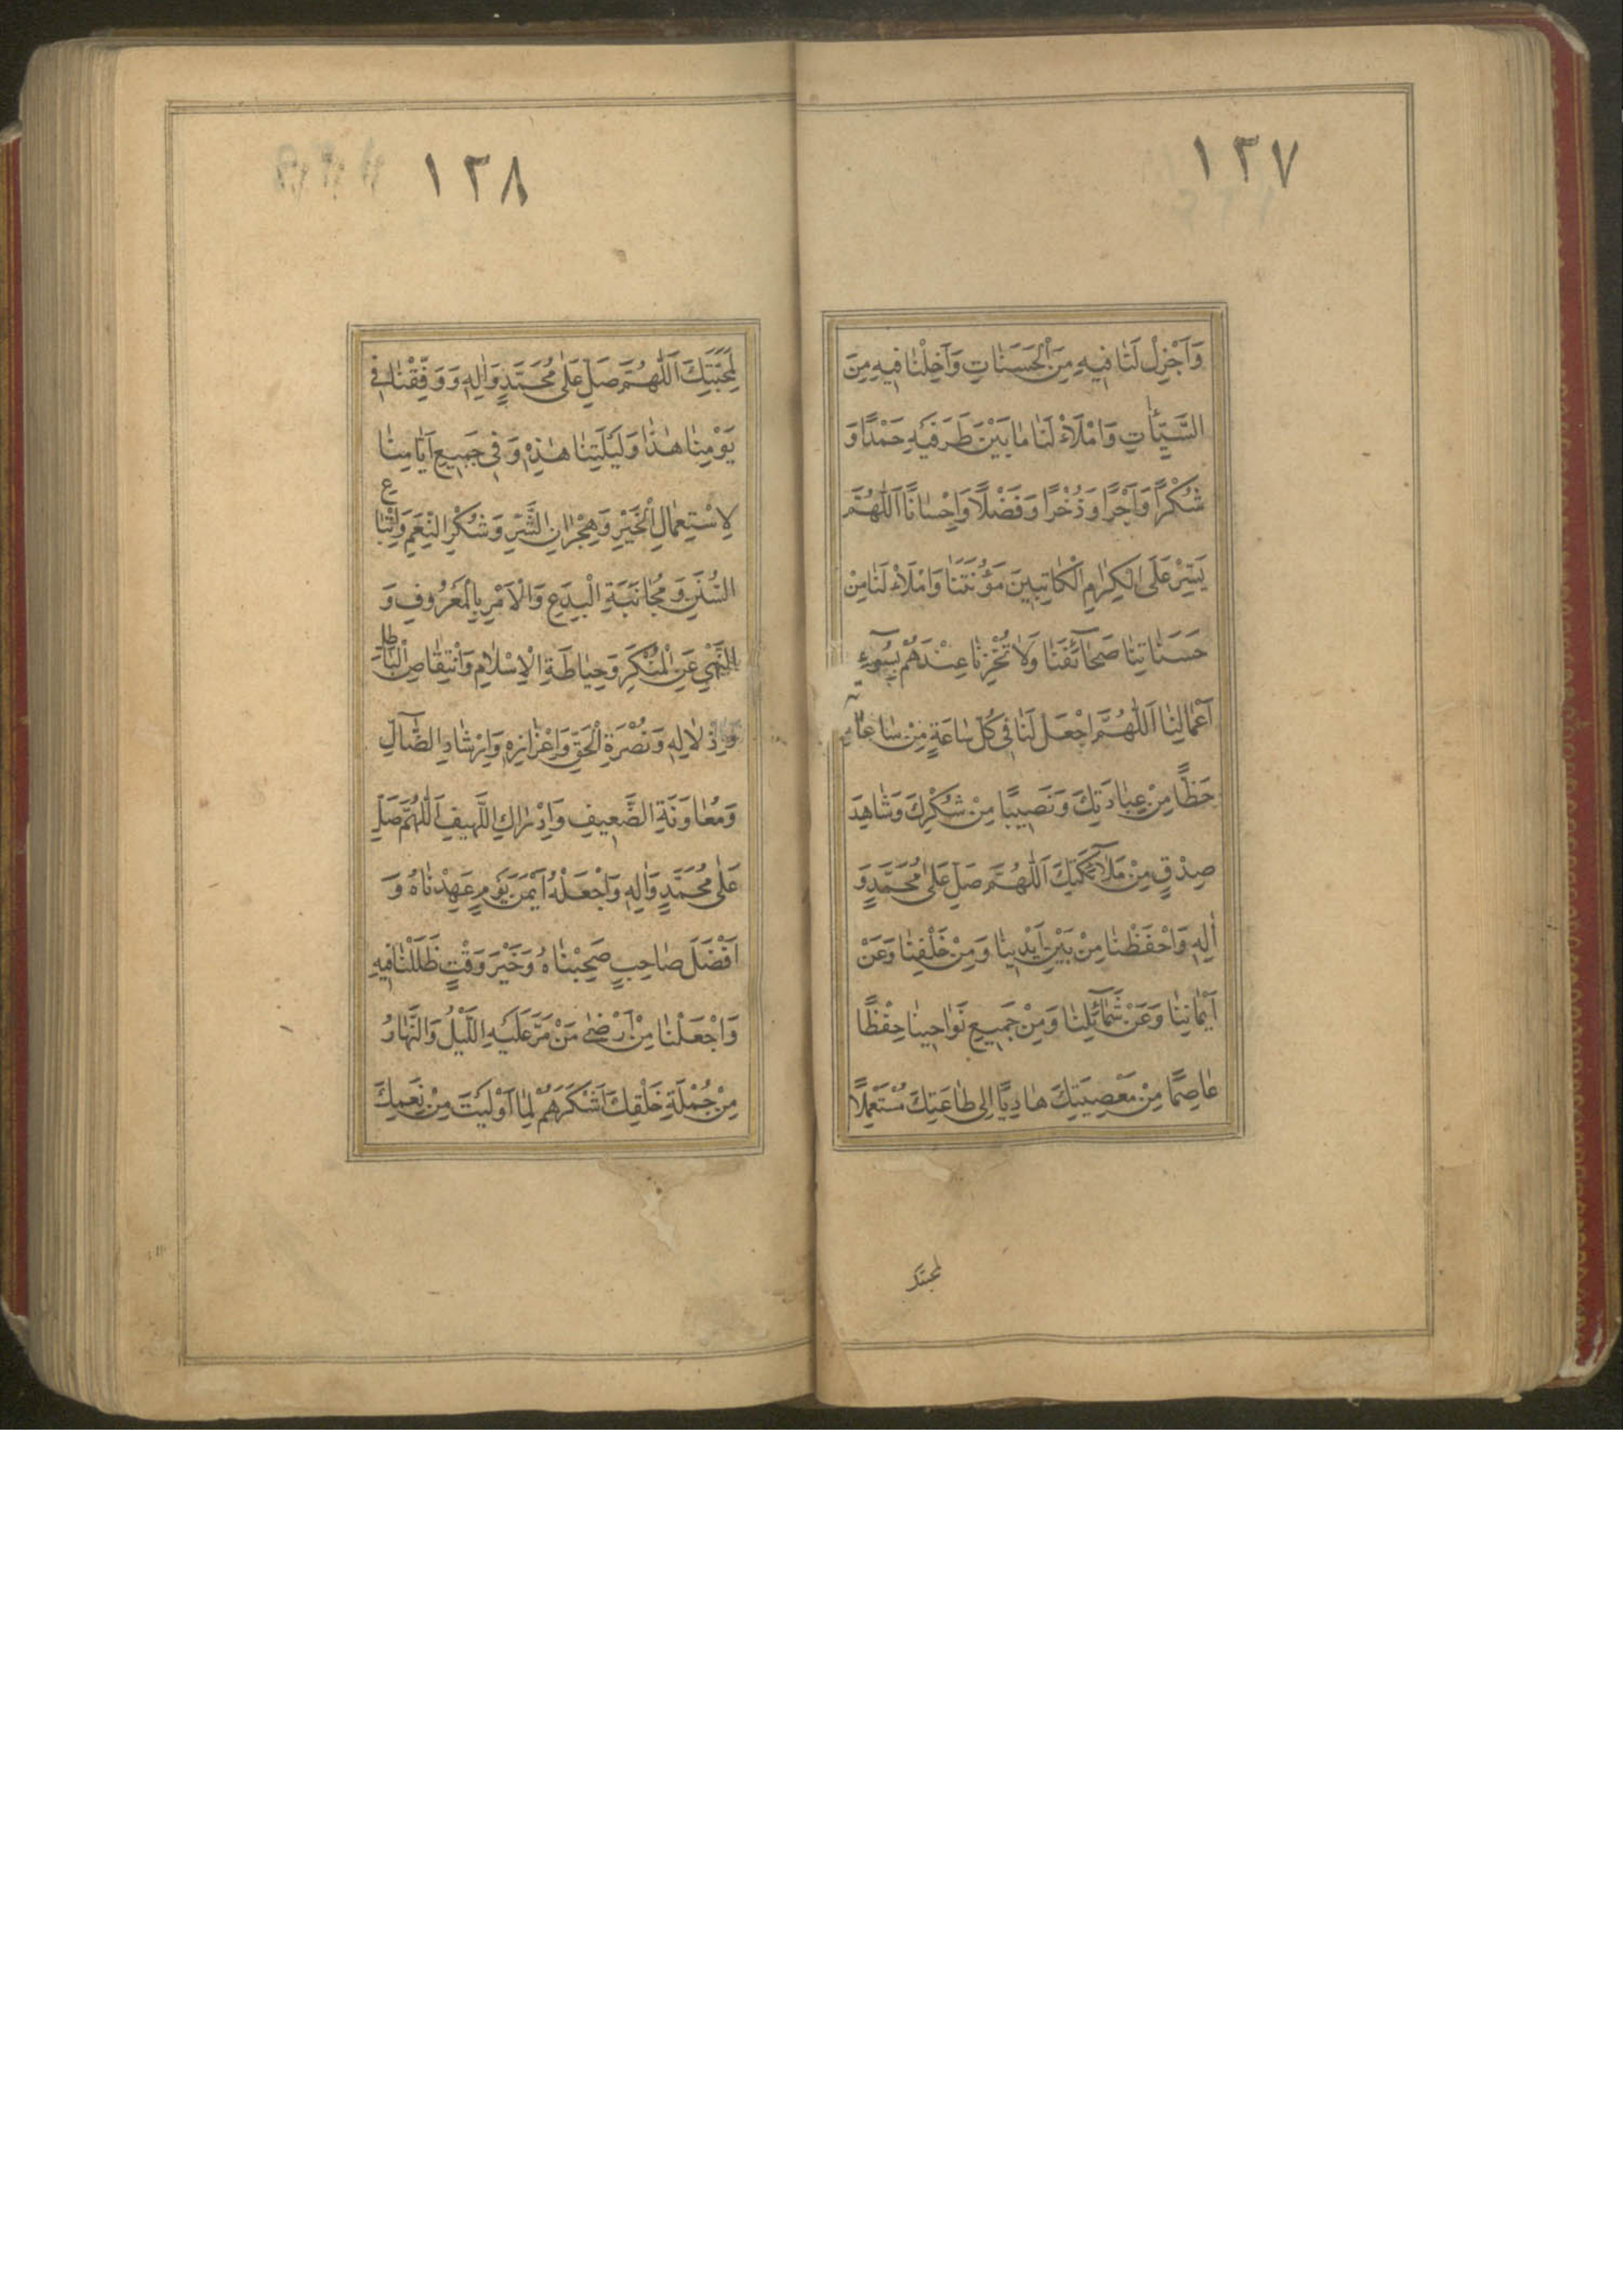 ١٣٧
وَاَجْزِلْ لَنَا فيهِ مِنَ الْحَسَنَاتِ وَاَخْلِنَا فيهِ مِنَ
السَّيِّأتِ وَامْلَأْ لَنَا مَا بَيْنَ طَرَفَيْهِ حَمْدًا وَ
شُكْرًا وَاَجْرًا وَذُخْرًا وَفَضْلًا وَاِحْسَانًا اَللّٰهُمَّ
يَسِّرْ عَلَى الْكِرَامِ الْكَاتِبينَ مَؤُنَتَنَا وَامْلَأْ لَنَا مِنْ
حَسَنَاتِنَا صَحَآئِفَنَا وَلَا تُخْزِنَا عِنْدَهُمْ بِسُوٓءِ
اَعْمَالِنَا اَللّٰهُمَّ اجْعَلْ لَنَا فى كُلِّ سَاعَةٍ مِنْ سَاعَاتِهِ
حَظًّا مِنْ عِبَادَتِكَ وَنَصيبًا مِنْ شُكْرِكَ وَشَاهِدَ
صِدْقٍ مِنْ مَلَآئِكَتِكَ اَللّٰهُمَّ صَلِّ عَلٰى مُحَمَّدٍ وَ
اٰلِهِ وَاحْفَظْنَا مِنْ بَيْنِ اَيْدينَا وَمِنْ خَلْفِنَا وَعَنْ
اَيْمَانِنَا وَعَنْ شَمَآئِلِنَا وَمِنْ جَميعِ نَوَاحينَا حِفْظًا
عَاصِمًا مِنْ مَعْصِيَتِكَ هَادِيًا اِلٰى طَاعَتِكَ مُسْتَعْمِلًا
لمحبتك
١٣٨
لِمَحَبَّتِكَ اَللّٰهُمَّ صَلِّ عَلٰى مُحَمَّدٍ وَاٰلِهِ وَوَفِّقْنَا فى
يَوْمِنَا هٰذَا وَلَيْلَتِنَا هٰذِهِ وَفى جَميعِ اَيَّامِنَا
لِاسْتِعْمَالِ الْخَيْرِ وَهِجْرَانِ الشَّرِّ وَشُكْرِ النِّعَمِ وَاتِّبَاعِ
السُّنَنِ وَمُجَانَبَةِ الْبِدَعِ وَالْاَمْرِ بِالْمَعْرُوفِ وَ
النَّهْىِ عَنِ الْمُنْكَرِ وَحِيَاطَةِ الْاِسْلَامِ وَانْتِقَاصِ الْبَاطِلِ
وَاِذْلَالِهِ وَنُصْرَةِ الْحَقِّ وَاِعْزَازِهِ وَاِرْشَادِ الضَّآلِّ
وَمُعَاوَنَةِ الضَّعيفِ وَاِدْرَاكِ اللَّهيفِ اَللّٰهُمَّ صَلِّ
عَلٰى مُحَمَّدٍ وَاٰلِهِ وَاجْعَلْهُ اَيْمَنَ يَوْمٍ عَهِدْنَاهُ وَ
اَفْضَلَ صَاحِبٍ صَحِبْنَاهُ وَخَيْرَ وَقْتٍ ظَلَلْنَا فيهِ
وَاجْعَلْنَا مِنْ اَرْضٰى مَنْ مَرَّ عَلَيْهِ اللَّيْلُ وَالنَّهَارُ
مِنْ جُمْلَةِ خَلْقِكَ اَشْكَرَهُمْ لِمَا اَوْلَيْتَ مِنْ نِعَمِكَ